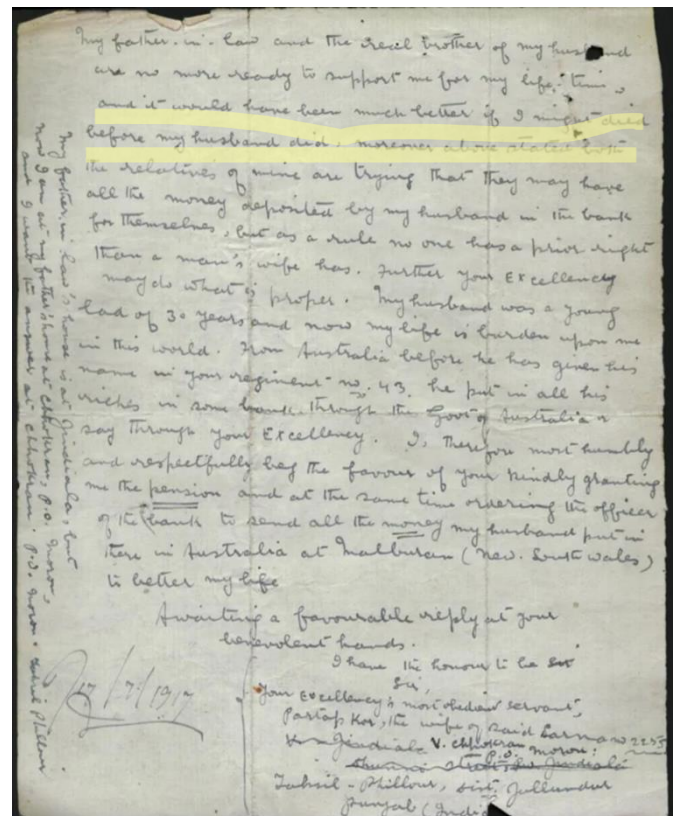 My father-in-law and the real brother of my husband
are no more ready to support me for my life-time,
and it would have been much better if I might died
before my husband did, moreover above stated both
the relatives of mine are trying that they may have
all the money deposited by my husband in the bank
for themselves, but as a rule no one has a prior right
than a man's wife has. Further your Excellency
may do what is proper. My husband was a young
lad of 30 years and now my life is burden upon me
in this world. From Australia before he has given his
name in your regiment no. 43. he put in all his
riches in some bank through the Govt of Australia or
say through your Excellency. I, therefore most humbly
and respectfully beg the favour of your kindly granting
me the pension and at the same time ordering the officer
of the bank to send all the money my husband put in
there in Australia at Malburan (New. South Wales)
to better my life
Awaiting a favourable reply at your
benevolent hands.
I have the honour to be
Sir,
Your Excellency's most obedient servant,
Partap Kor, the wife of said Sarn 2255
Jindiala V. Chhokran P.O. Moron:
Tahsil - Phillour, Dist. Jullundur
Punjab (India
17/7/1917
My father-in-law's house is at Jindiala, but
now I am at my father's house at Chhokran, P.O. Moron,
and I want the answer at Chhokran. P.O. Moron. Tahsil Phillour